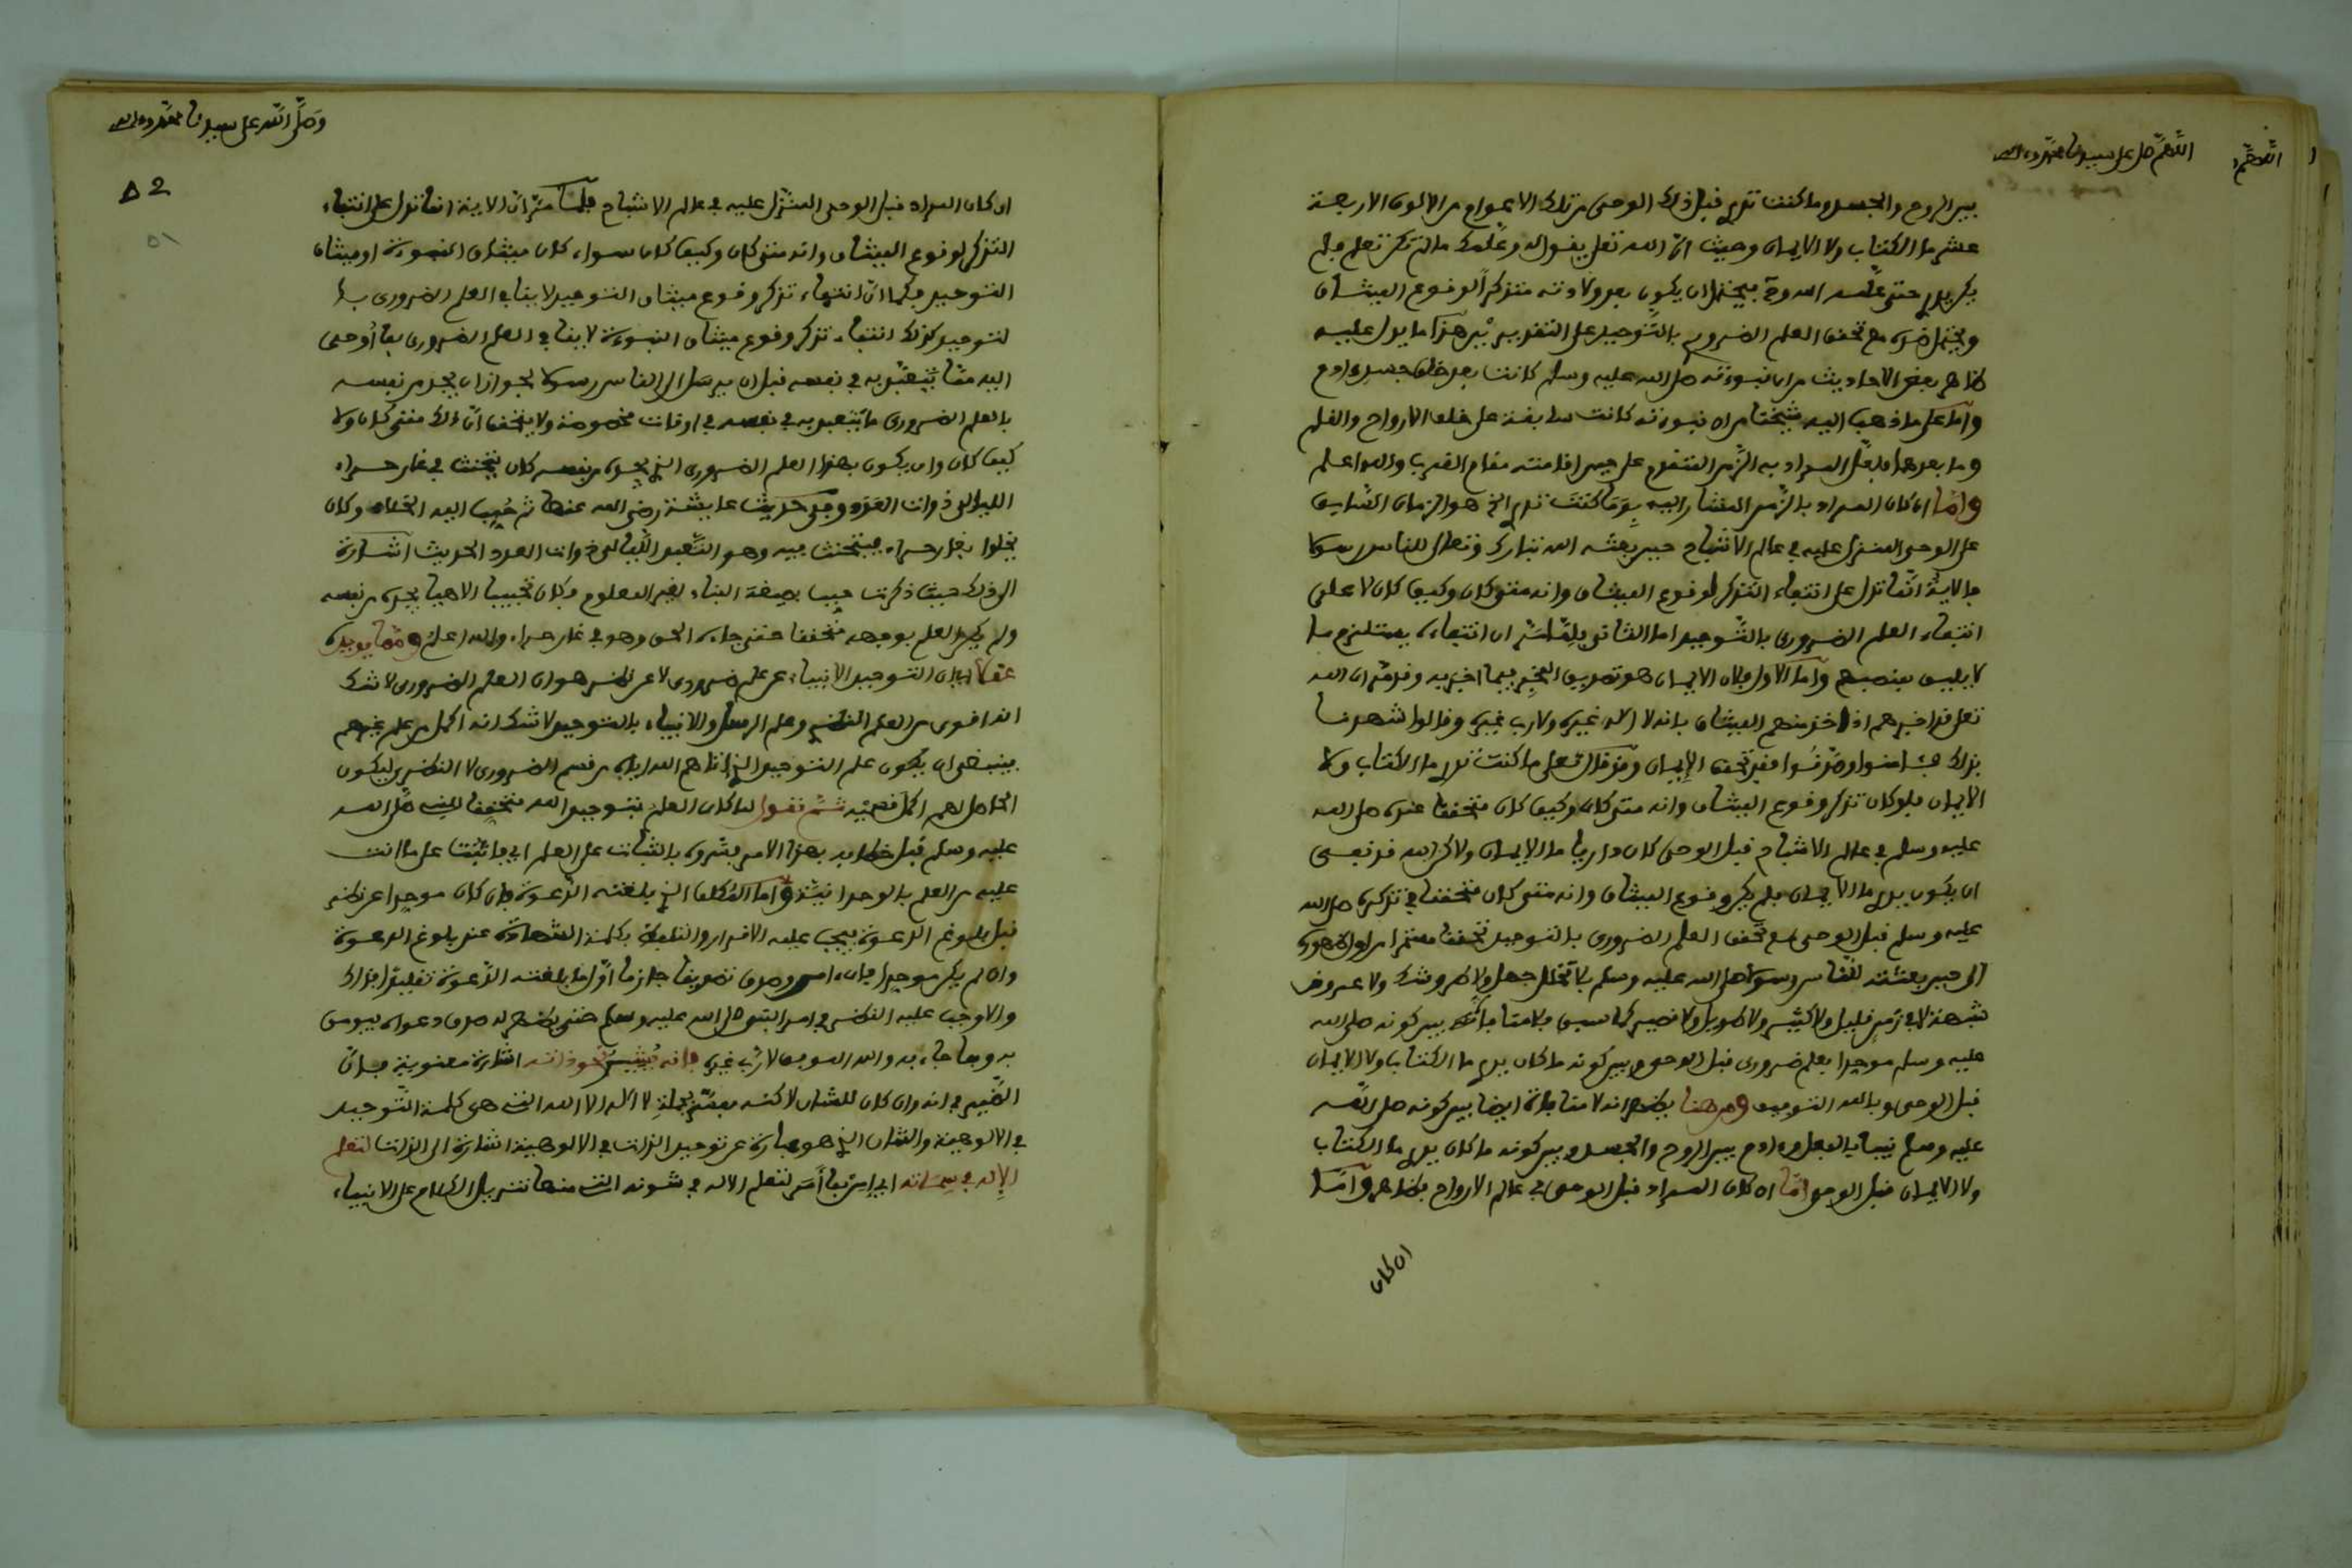 اللهم صل على سيدنا محمد وءاله
بين الروح والجسد وما كنت تدري قبل ذلك الوحي من تلك الاعوام من الالوف الاربعة
عشر ما الكتاب ولا الايمان وحيث ان الله تعلى يقول له وعلمك ما لم تكن تعلم فلم
يكن يدري حتى علمه الله وقد يحتمل ان يكون بعد ولادته متذكرا لوقوع الميثاق
ويحتمل مع تحقق العلم الضروري بالتوحيد على التقديرين هذا ما يدل عليه
ظاهر بعض الاحاديث من ان نبوءته صلى الله عليه وسلم كانت بعد خلق جسد ءادم
واما على ما ذهب اليه شيخنا من ان نبوءته كانت سابقة على خلق الارواح والقلم
وما بعدهما فلعل المراد به الزمن المتقدم على حين اقامته مقام القرب والله اعلم
واما ان كان المراد بالزمن المشار اليه بوما كنت تدري الخ هو الزمان السابق
على الوحي المنزل عليه في عالم الاشباح حين بعثه الله تبارك وتعلى للناس رسولا
فالاية انما تدل على انتفاء التذكر لوقوع الميثاق وانه متى كان وكيف كان لا على
انتفاء العلم الضروري بالتوحيد اما الثاني فلما مر ان انتفاءه يستلزم ما
لا يليق بمنصبهم واما الاول فلان الايمان هو تصديق المخبر فيما اخبر به وقد مر ان الله
تعلى قد اخبرهم اذ اخذ منهم الميثاق بانه لا اله غيره ولا رب غيره وقالوا شهدنا
بذلك فئامنوا وصدقوا فقد تحقق الايمان وقد قال تعلى ما كنت تدري ما الكتاب ولا
الايمان فلو كان تذكر وقوع الميثاق وانه متى كان وكيف كان متحققا عنده صلى الله
عليه وسلم في عالم الاشباح قبل الوحي كان داريا ما الايمان ولاكن الله قد نفى
ان يكون يدري ما الايمان فلم يكن وقوع الميثاق وانه متى كان متحققا في تذكره صلى الله
عليه وسلم قبل الوحي مع تحقق العلم الضروري بالتوحيد تحققا مستمرا من اول ظهوره
الى حين بعثته للناس رسولا صلى الله عليه وسلم بلا تخلل جهل ولا طرو شك ولا عروض
شبهة لا في زمن قليل ولا كثير ولا طويل ولا قصير كما سبق فلا منافاة بين كونه صلى الله
عليه وسلم موحدا بعلم ضروري قبل الوحي وبين كونه ما كان يدري ما الكتاب ولا الايمان
قبل الوحي وبالله التوفيق ومن هنا يظهر انه لا منافاة ايضا بين كونه صلى الله
عليه وسلم نبيا بالفعل وءادم بين الروح والجسد وبين كونه ما كان يدري ما الكتاب
ولا الايمان قبل الوحي اما ان كان المراد قبل الوحي في عالم الارواح فظاهر واما
ان كان
وصلى الله على سيدنا محمد وءاله
52
51
ان كان المراد قبل الوحي المنزل عليه في عالم الاشباح فلما مر ان الاية انما تدل على انتفاء
التذكر لوقوع الميثاق وانه متى كان وكيف كان سواء كان ميثاق النبوءة او ميثاق
التوحيد فكما ان انتفاء تذكر وقوع ميثاق التوحيد لا ينافي العلم الضروري با
لتوحيد كذلك انتفاء تذكر وقوع ميثاق النبوءة لا ينافي العلم الضروري بما اوحي
اليه مما يتعبد به في نفسه قبل ان يرسل الى الناس رسولا لجواز ان يجد من نفسه
بالعلم الضروري ما يتعبد به في نفسه في اوقات مخصوصة ولا يتحقق ان ذلك متى كان ولا
كيف كان وان يكون بهذا العلم الضروري الذي يجده من نفسه كان يتحنث في غار حراء
الليالي ذوات العدد وفي حديث عايشة رضي الله عنها ثم حبب اليه الخلاء وكان
يخلوا بغار حراء فيتحنث فيه وهو التعبد الليالي ذوات العدد الحديث اشارة
الى ذلك حيث ذكرت حبب بصيغة البناء لغير المعلوم فكان تحبيبا الاهيا يجده من نفسه
ولم يكن العلم بوجهه متحققا حتى جاءه الحق وهو في غار حراء والله اعلم ومما يويده
عقلا ان التوحيد الانبياء عن علم ضروري لا عن نظر هو ان العلم الضروري لا شك
انه اقوى من العلم النظري وعلم الرسل والانبياء بالتوحيد لا شك انه اكمل من علم غيرهم
فينبغي ان يكون علم التوحيد الذي اتاهم الله اياه من قسم الضروري لا النظري ليكون
الحاصل لهم اكمل قسميه ثم نقول لما كان العلم بتوحيد الله متحققا للنبي صلى الله
عليه وسلم قبل خطابه بهذا الامر بالثبات على العلم اي فاثبت على ما انت
عليه من العلم بالوحدانية واما المكلف الذي بلغته الدعوة فان كان موحدا عن نظر
قبل بلوغ الدعوة فيجب عليه الاقرار والتلفظ بكلمة الشهادة عند بلوغ الدعوة
وان لم يكن موحدا فان ءامن وصدق تصديقا جازما اول ما بلغته الدعوة تقليدا فذاك
والا وجب عليه النظر في امر النبي صلى الله عليه وسلم حتى يظهر له صدق دعواه فيومن
به وبما جاء به والله الموفق لا رب غيره فانه يشير نحو ذاته اشارة معنوية فان
الضمير في انه وان كان للشان لاكنه مفسر بجملة لا اله الا الله التي هي كلمة التوحيد
في الالوهية والشان الذي هو عبارة عن توحيد الذات في الالوهية اشارة الى الذات لتعلم
الاله في سماته اي انما امر لتعلم الاله في شئونه التي منها تنزيل الكلام على الانبياء